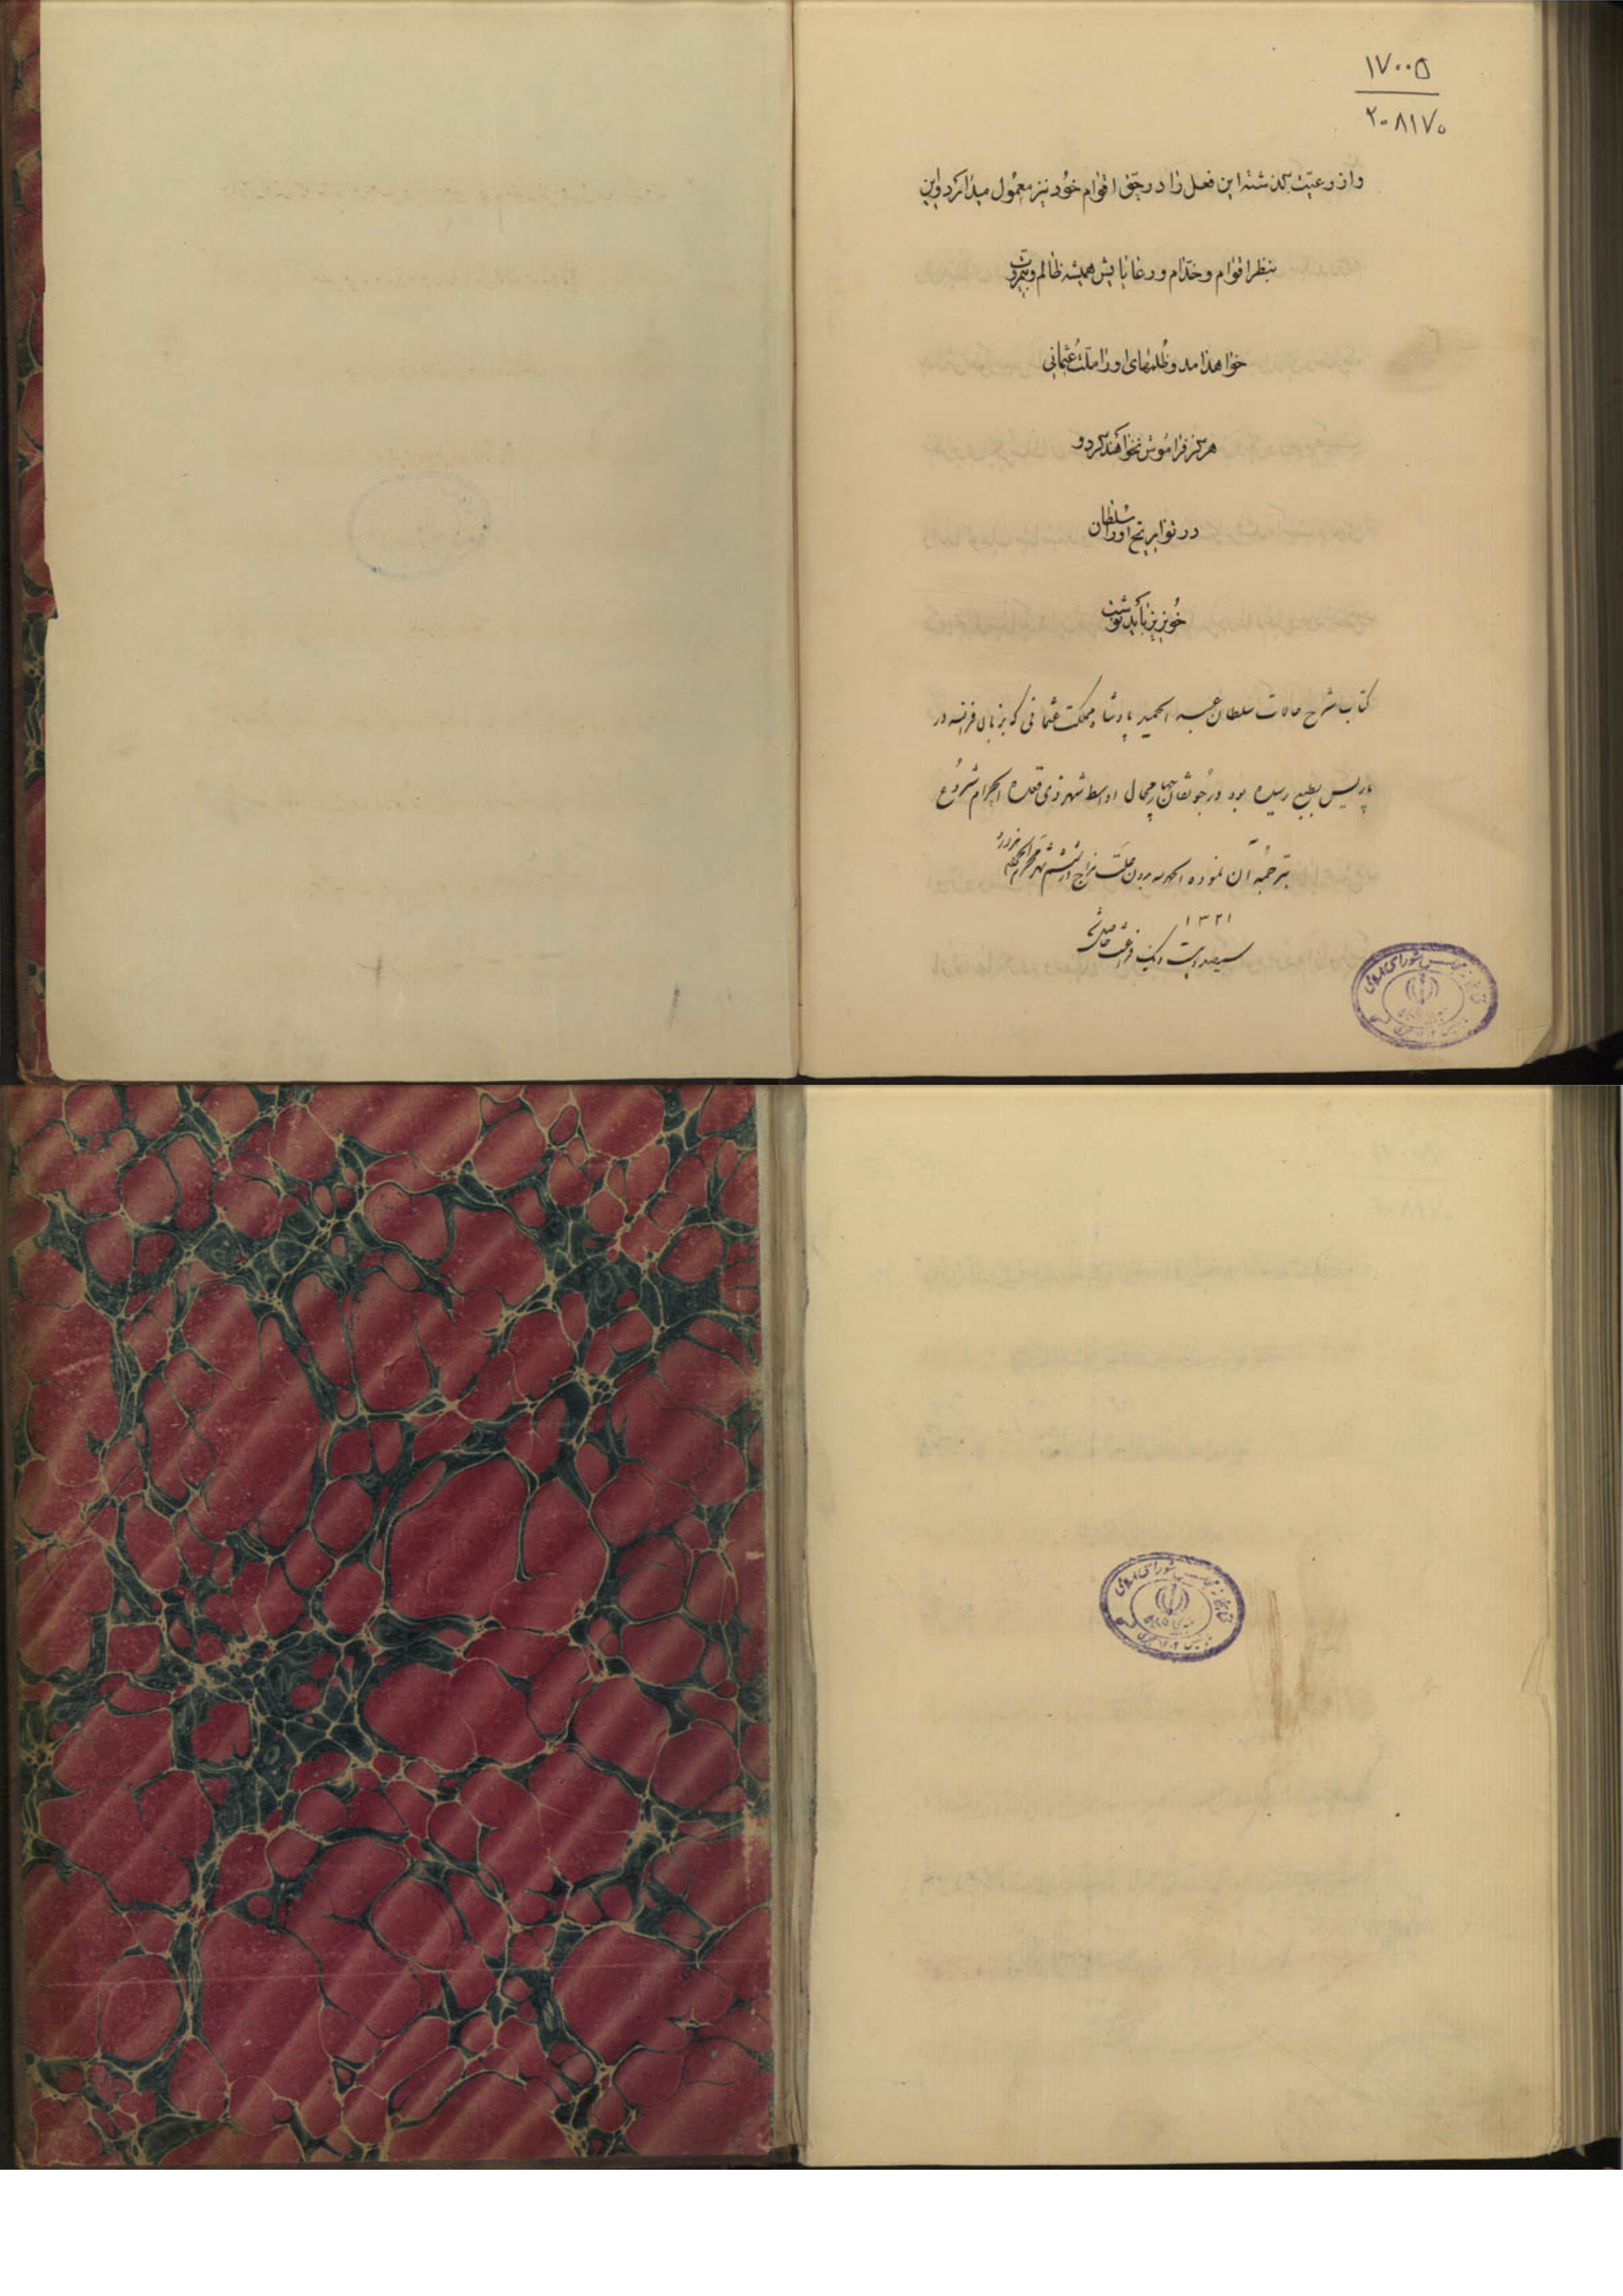 ۱۷۰۰۵
۲۰۸۱۷۰
و از رعیّت گذشته این فعل را در حقّ اقوام خود نیز معمول میدارد و این
بنظر اقوام و خدّام و رعایایش همیشه ظالم و بیمروّت
خواهد آمد و ظلمهای او را ملّت عثمانی
هرگز فراموش نخواهند کرد و
در تواریخ او را سلطان
خونریز باید نوشت
کتاب شرح حالات سلطان عبد الحمید پادشاه مملکت عثمانی که بزبان فرانسه در
پاریس بطبع رسیده بود در جونقان چهار محال اواسط شهر ذی قعده الحرام شروع
بترجمه آن نموده الحمد لله بدون در ششم شهر محرم الحرام
۱۳۲۱
سیصد و بیست و یک فراغت حاصل شد
کتابخانه مجلس شورای اسلامی